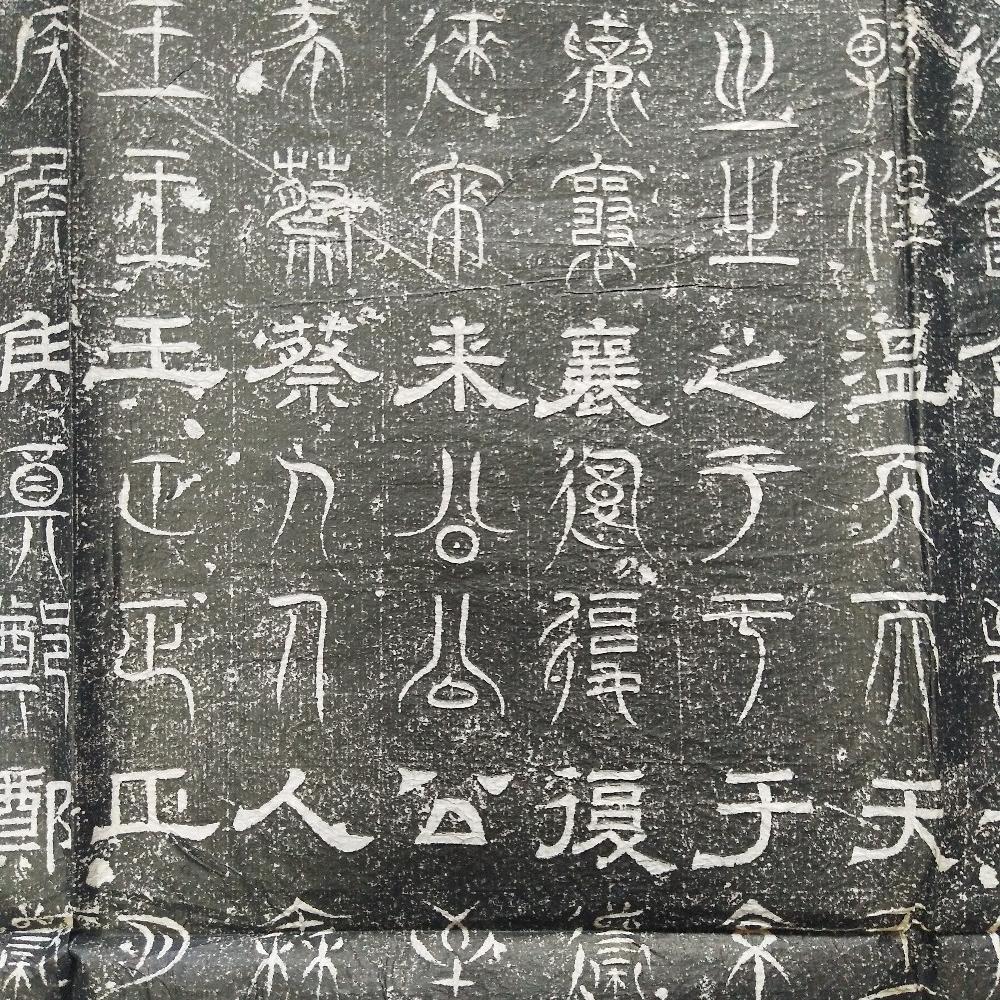 溫溫溫天天天
之之之于于于京
襄襄襄復復復
來來來公公公
蔡蔡蔡人人人秦
王王王正正正月
侯侯侯鄭鄭鄭